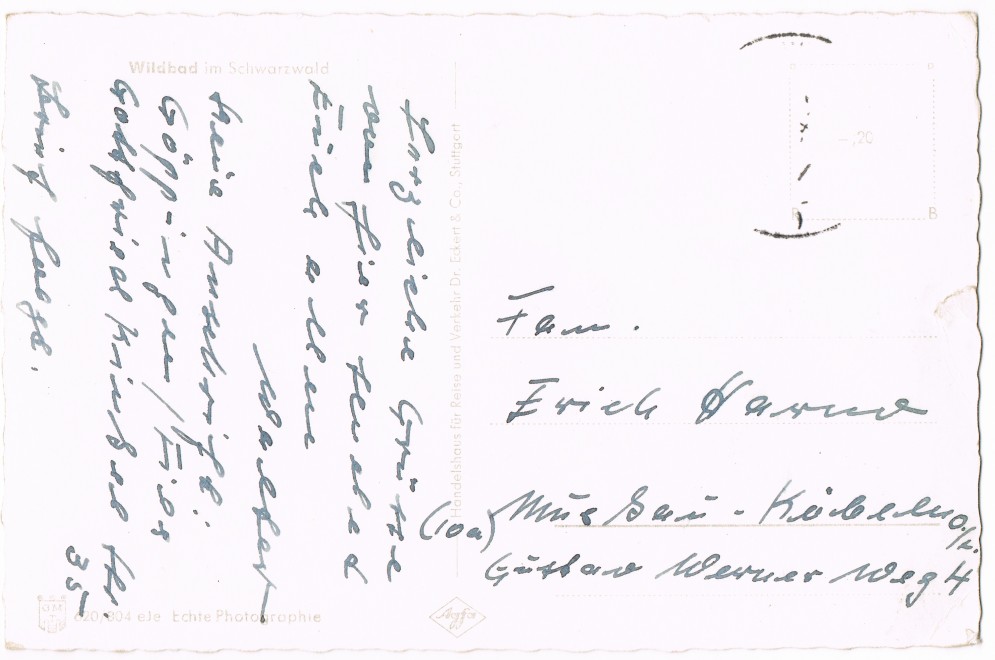 Wildbad im Schwarzwald
Herzliche Grüsse
von hier sendet
Euch allen
Walter
Meine Anschrift
Göppingen/Fils
Gottfried Kinkel Str.
35
Brief folgt.
Handelshaus für Reise und Verkehr Dr. Eckert & Co., Stuttgart
620/804 eJe Echte Photographie
Agfa
-,20
R B
Fam.
Erich
(10a) Muskau-Köbeln O/L.
Gustav Werner Weg 4